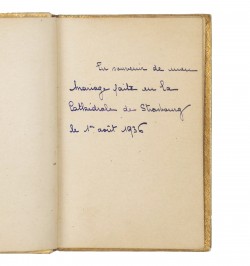 En souvenir de mon
Mariage faite en la
Cathédrale de Strasbourg
le 1er août 1936